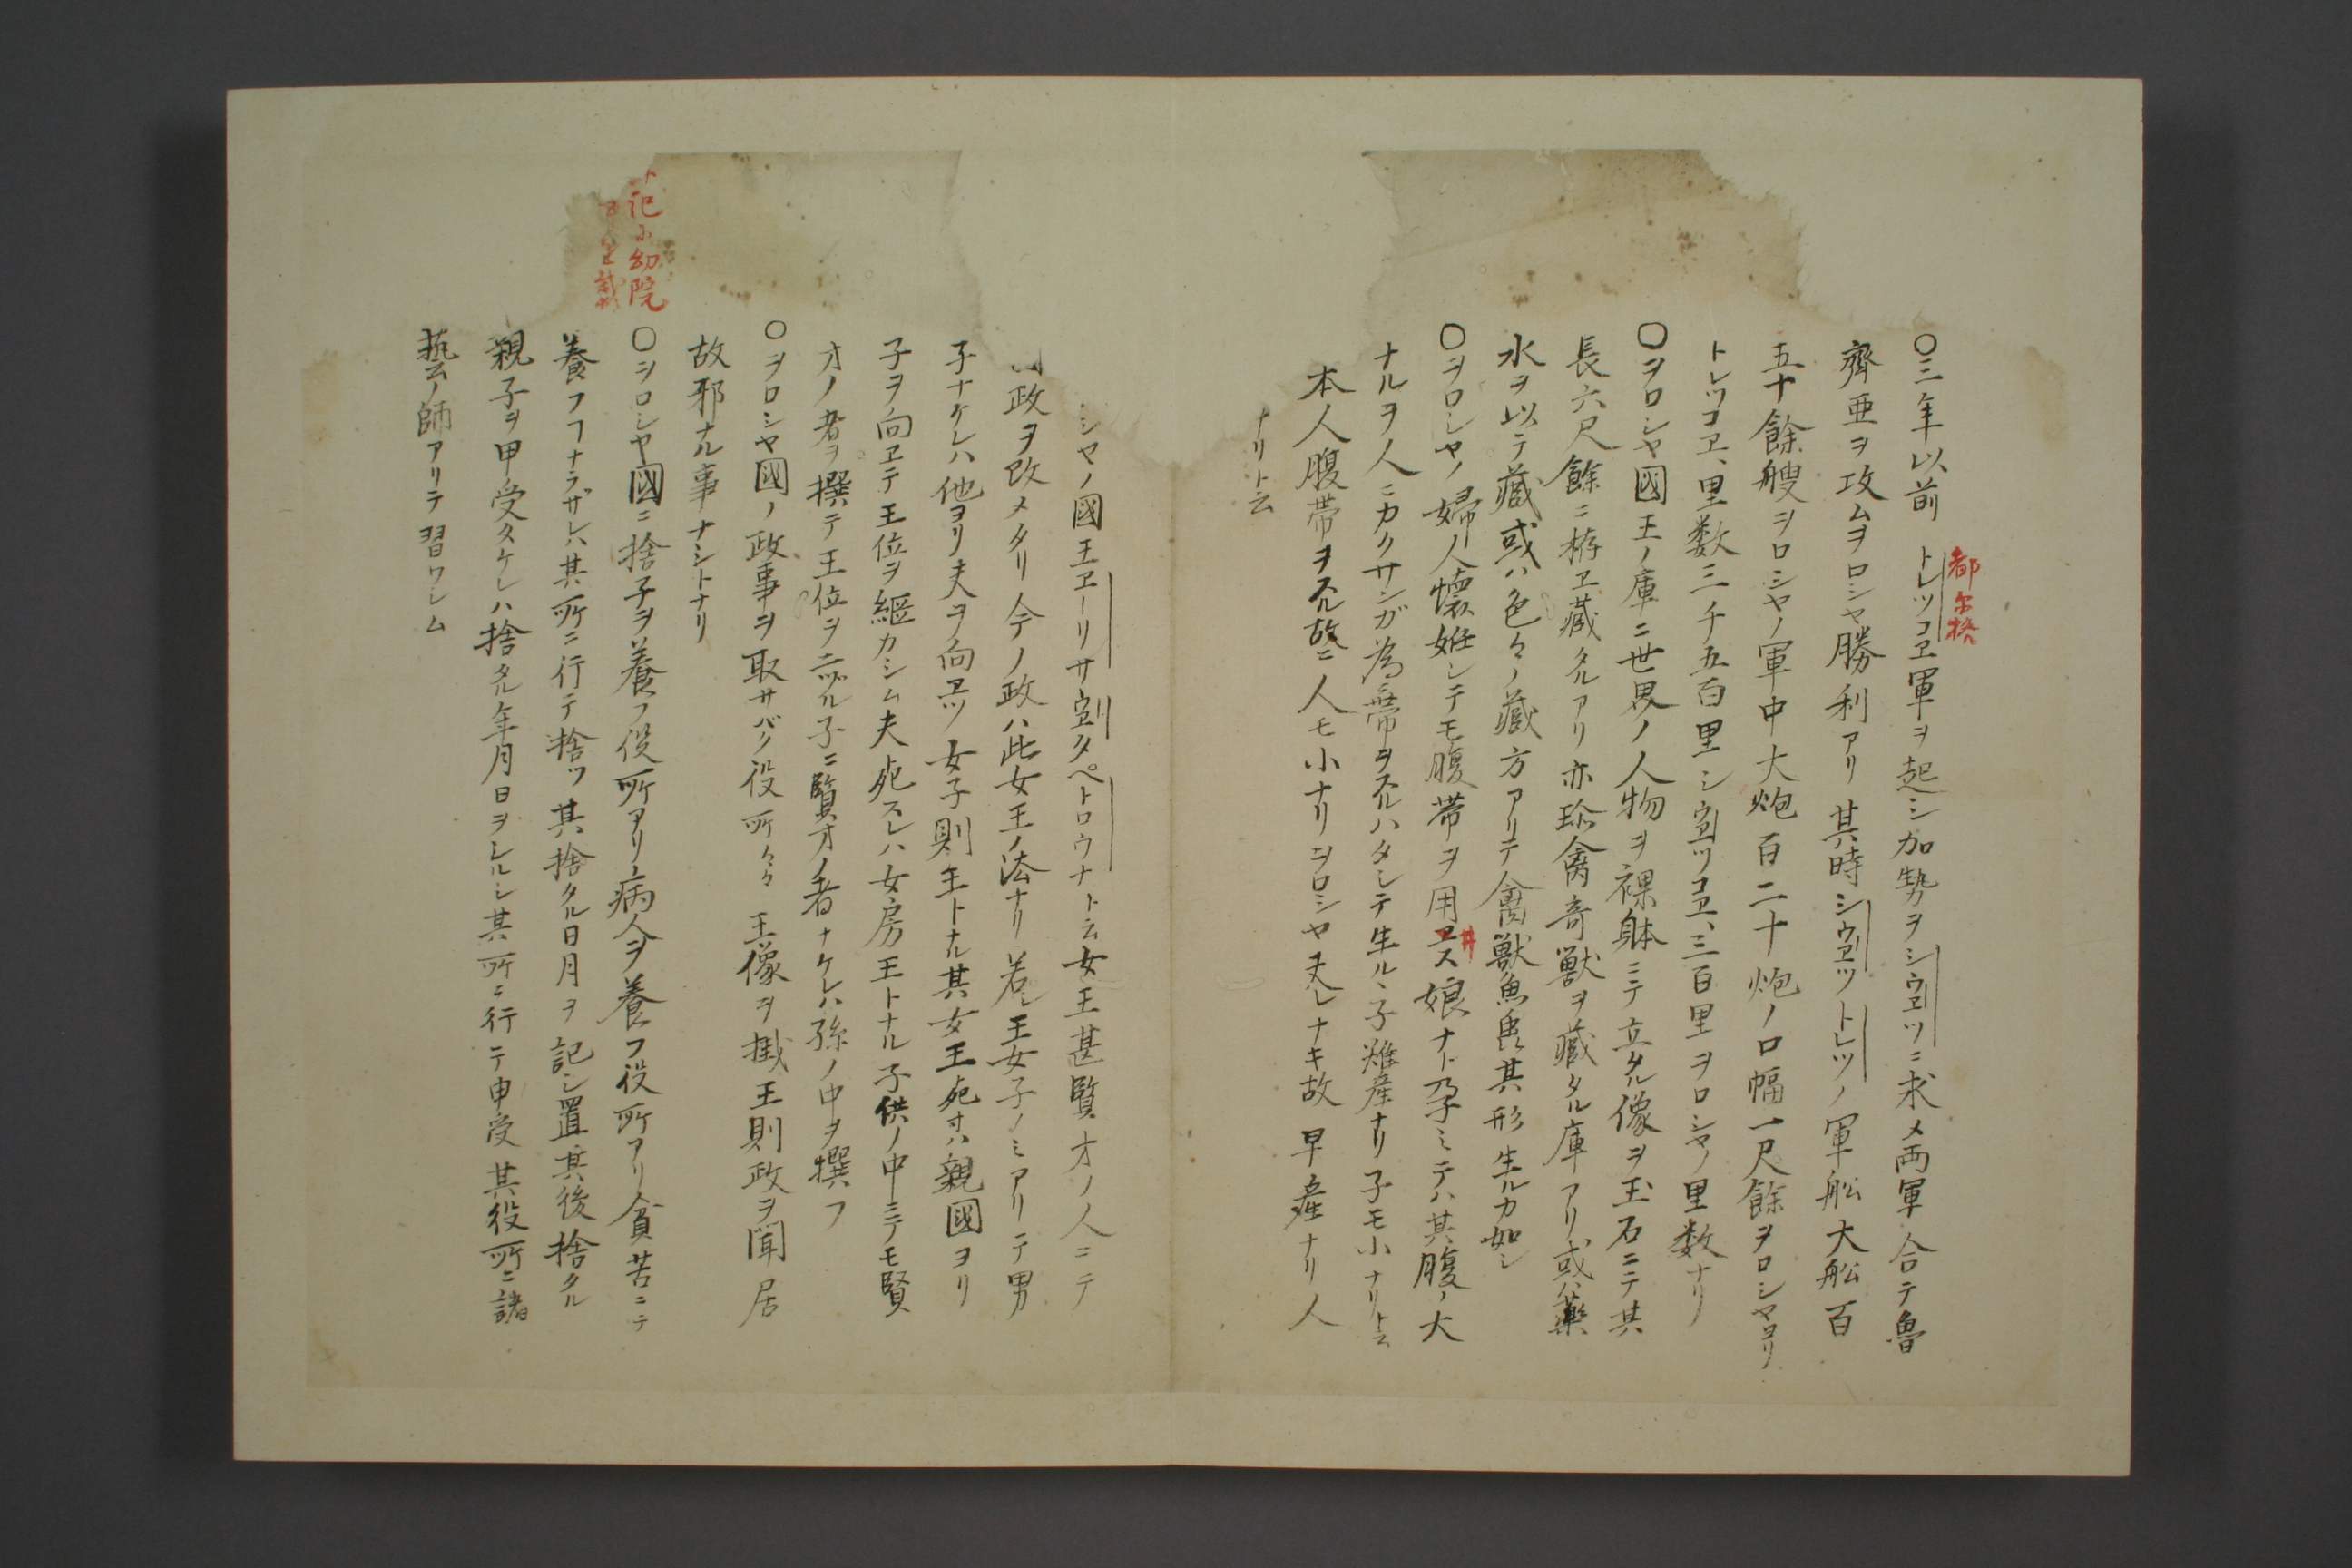 〇三年以前トレツコヱ軍ヲ起シ加勢ヲシウヱツニ求メ両軍合テ魯
都尓格
齊亜ヲ攻ムヲロシヤ勝利アリ其時シウヱツトレツノ軍舩大舩百
五十餘艘ヲロシヤノ軍中大炮百二十炮ノ口幅一尺餘ヲロシヤヨリ
トレツコヱ里数三千五百里シウヱツコヱ三百里ヲロシヤノ里数ナリ
〇ヲロシヤ國王ノ庫ニ世界ノ人物ヲ裸躰ニテ立タル像ヲ玉石ニテ其
長六尺餘ニ拵ヱ藏タルアリ亦珎禽竒獣ヲ藏タル庫アリ或ハ藥
水ヲ以テ藏或ハ色々ノ藏方アリテ禽獣魚虫其形生ルカ如シ
〇ヲロシヤノ婦人懐姙シテモ腹帯ヲ用ヱス娘ナト孕ミテハ其腹ノ大
ナルヲ人ニカクサンガ為帯ヲスルハタシテ生ルヽ子難産ナリ子モ小ナリト云
本人腹帯ヲスル故ニ人モ小ナリヲロシヤ夫レナキ故早産ナリ人
ナリト云
シヤノ國王ヱーリサウヱタペトロウナト云女王甚賢才ノ人ニテ
政ヲ改メタリ今ノ政ハ此女王ノ法ナリ若シ王女子ノミアリテ男
子ナケレハ他ヨリ夫ヲ向ヱツ女子則王トナル其女王死スレハ親國ヨリ
子ヲ向ヱテ王位ヲ継カシム夫死スレハ女房王トナル子供ノ中ニテモ賢
才ノ者ヲ撰テ王位ヲユツル子ニ賢才ノ者ナケレハ孫ノ中ヲ撰フ
〇ヲロシヤ國ノ政事ヲ取サバク役所々々王像ヲ掛王則政ヲ聞居
故邪ナル事ナシトナリ
記小幼院
〇ヲロシヤ國ニ捨子ヲ養フ役所アリ病人ヲ養フ役所アリ貧苦ニテ
養フフナラザレハ其所ニ行テ捨ツ其捨タル日月ヲ記シ置其後捨タル
親子ヲ申受タケレハ捨タル年月日ヲシルシ其所ニ行テ申受其役所ニ諸
藝ノ師アリテ習ワシム